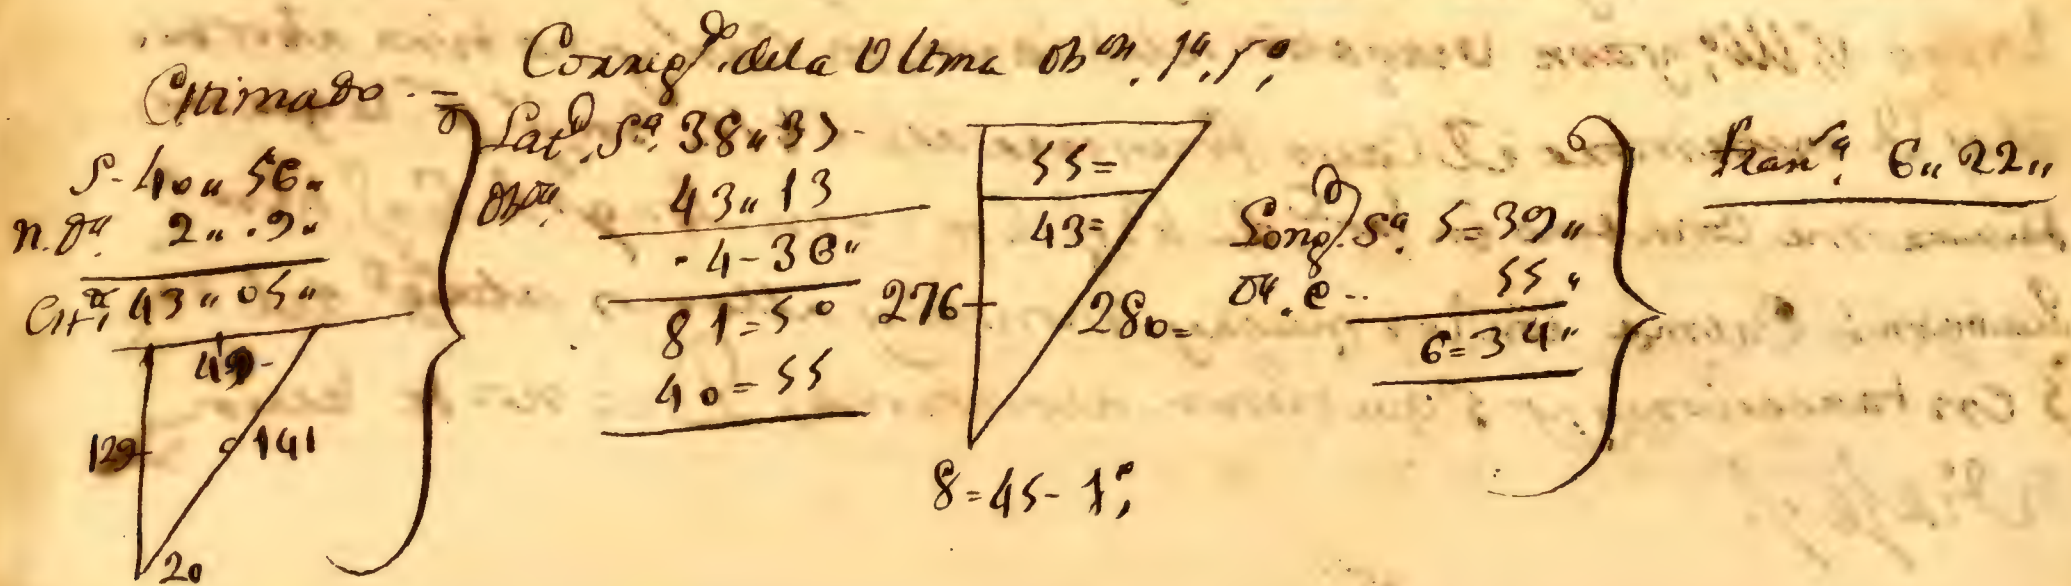 Corrigᵈᵒ. dela Ultma obᵒⁿ.
Estimado =
S- 40〃 56〃
n. Dᵃ. 2〃 .9〃
Estᵈᵃ 43〃 05〃
49-
129
141
20
Latᵈ. Sᵃ. 38〃 37-
obᵈᵃ. 43〃 13
4-36〃
81=50
40=55
55=
43=
276
280=
8=45- 1º,
Longᵈ. Sᵃ. 5=39〃
Dᵃ. e.. 55〃
6=34〃
franˢᵃ. 6〃 22〃